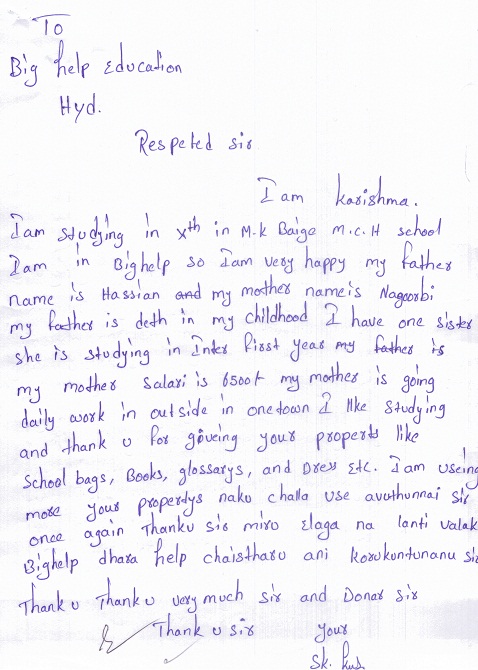 To
Big help Education
Hyd.
Respeted sir
I am karishma.
I am studying in Xth in M.k Baige M.C.H school
I am in Bighelp so I am very happy my father
name is Hassian and my mother name is Nagoorbi
my father is deth in my childhood I have one sister
she is studying in Inter first year my father is
my mother Salari is 6500/- my mother is going
daily work in outside in onetown I like studying
and thank u for giveing your propertis like
School bags, Books, glossarys, and Dress Etc. I am useing
more your properdys naku challa use avuthunnai Sir
once again Thanku sir miru Elaga na lanti valak
Bighelp dhara help chaistharu ani korukuntunanu Sir
Thank u Thank u very much sir and Donar sir
Thank u sir your
Sk.